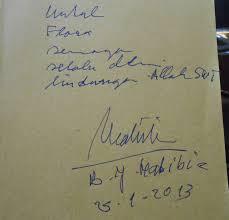 Untuk
Flora
semoga
selalu dlm
lindungan Allah SWT
B J Habibie
25-1-2013